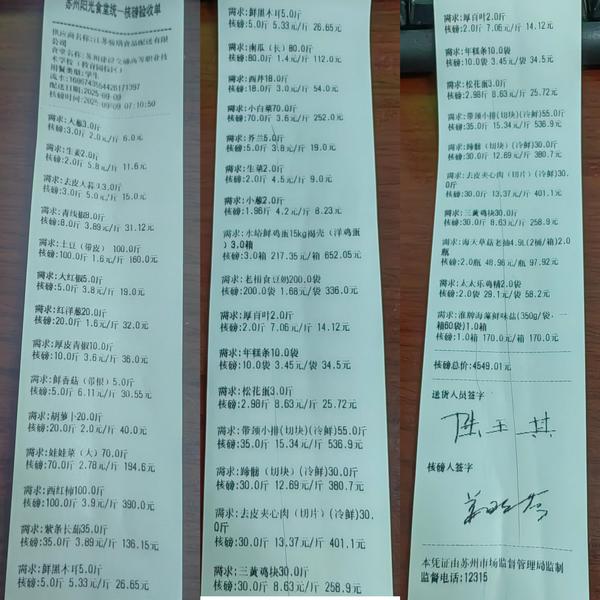 苏州阳光食堂统一核磅验收单
供应商名称:江苏
食品配送有限
公司
食堂名称:苏州建设交通高等职业技
术学校(教育园校区)
用餐类型:学生
配送日期:2025-09-09
核磅时间:2025-09-09 07:10:50
需求:大葱3.0斤
核磅:3.0斤 2.0元/斤 6.0元
需求:生姜2.0斤
核磅:2.0斤 5.8元/斤 11.6元
需求:去皮大蒜3.0斤
核磅:3.0斤 5.0元/斤 15.0元
需求:青线椒8.0斤
核磅:8.0斤 3.89元/斤 31.12元
需求:土豆(带皮) 100.0斤
核磅:100.0斤 1.6元/斤 160.0元
需求:大红椒5.0斤
核磅:5.0斤 3.8元/斤 19.0元
需求:红洋葱20.0斤
核磅:20.0斤 1.6元/斤 32.0元
需求:厚皮青椒10.0斤
核磅:10.0斤 3.6元/斤 36.0元
需求:鲜香菇(带根)5.0斤
核磅:5.0斤 6.11元/斤 30.55元
需求:胡萝卜20.0斤
核磅:20.0斤 2.0元/斤 40.0元
需求:娃娃菜(大)70.0斤
核磅:70.0斤 2.78元/斤 194.6元
需求:西红柿100.0斤
核磅:100.0斤 3.9元/斤 390.0元
需求:紫条长茄35.0斤
核磅:35.0斤 3.89元/斤 136.15元
需求:鲜黑木耳5.0斤
核磅:5.0斤 5.33元/斤 26.65元
需求:鲜黑木耳5.0斤
核磅:5.0斤 5.33元/斤 26.65元
需求:南瓜(长)80.0斤
核磅:80.0斤 1.4元/斤 112.0元
需求:西芹18.0斤
核磅:18.0斤 3.0元/斤 54.0元
需求:小白菜70.0斤
核磅:70.0斤 3.6元/斤 252.0元
需求:芥兰5.0斤
核磅:5.0斤 3.8元/斤 19.0元
需求:生菜2.0斤
核磅:2.0斤 4.5元/斤 9.0元
需求:小葱2.0斤
核磅:1.96斤 4.2元/斤 8.23元
需求:水培鲜鸡蛋15kg褐壳(洋鸡蛋
)3.0箱
核磅:3.0箱 217.35元/箱 652.05元
需求:老相食豆奶200.0袋
核磅:200.0袋 1.68元/袋 336.0元
需求:厚百叶2.0斤
核磅:2.0斤 7.06元/斤 14.12元
需求:年糕条10.0袋
核磅:10.0袋 3.45元/袋 34.5元
需求:松花蛋3.0斤
核磅:2.98斤 8.63元/斤 25.72元
需求:带颈小排(切块)(冷鲜)55.0斤
核磅:35.0斤 15.34元/斤 536.9元
需求:蹄髈(切块)(冷鲜)30.0斤
核磅:30.0斤 12.69元/斤 380.7元
需求:去皮夹心肉(切片)(冷鲜)30.
0斤
核磅:30.0斤 13.37元/斤 401.1元
需求:三黄鸡块30.0斤
核磅:30.0斤 8.63元/斤 258.9元
需求:厚百叶2.0斤
核磅:2.0斤 7.06元/斤 14.12元
需求:年糕条10.0袋
核磅:10.0袋 3.45元/袋 34.5元
需求:松花蛋3.0斤
核磅:2.98斤 8.63元/斤 25.72元
需求:带颈小排(切块)(冷鲜)55.0斤
核磅:35.0斤 15.34元/斤 536.9元
需求:蹄髈(切块)(冷鲜)30.0斤
核磅:30.0斤 12.69元/斤 380.7元
需求:去皮夹心肉(切片)(冷鲜)30.
0斤
核磅:30.0斤 13.37元/斤 401.1元
需求:三黄鸡块30.0斤
核磅:30.0斤 8.63元/斤 258.9元
需求:海天草菇老抽4.9L(2桶/箱)2.0
瓶
核磅:2.0瓶 48.96元/瓶 97.92元
需求:太太乐鸡精2.0袋
核磅:2.0袋 29.1元/袋 58.2元
需求:淮牌海藻鲜味盐(350g/袋,一
箱60袋)1.0箱
核磅:1.0箱 170.0元/箱 170.0元
核磅总价:4549.01元
送货人员签字
陈玉其
核磅人签字
本凭证由苏州市场监督管理局监制
监督电话:12315